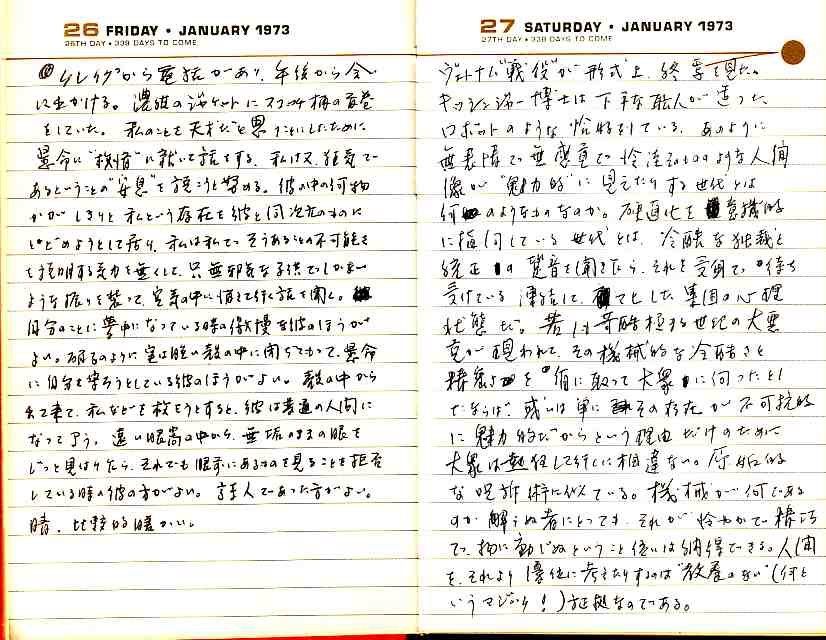 26 FRIDAY • JANUARY 1973
26TH DAY • 339 DAYS TO COME
から電話があり、午後から会い
に出かける。濃紺のジャケットに
をしていた。私のことを天才だと思うことにしたために
懸命に
あるということの
かがしきりと私という存在を彼と同次元のものに
とどめようとして居り、私は私でそうあることの不可能さ
を説明する気力を無くして、只無邪気な子供でしかない
ような振りを装って、空気の中に消えて行く話を聞く。
自分のことに夢中になっている時の傲慢な彼のほうが
よい。のように実は暗い殻の中に閉じこもって、懸命
に自分を守ろうとしている彼のほうがよい。殻の中から
出て来て、私などを救おうとすると、彼は普通の人間に
なって了う。遠い眼窩の中から、無垢のままの眼を
じっと見はりながら、それでも眼前にあるものを見ることを拒否
している時の彼の方がよい。詩人であった方がよい。
晴、比較的暖かい。
27 SATURDAY • JANUARY 1973
27TH DAY • 338 DAYS TO COME
ヴェトナム“戦役”が形式上、終焉を見た。
キッシンジャー博士は下手な職人が造った
ロボットのような恰好をしている。あのように
無表情で無感動で冷淡そのもののような人間
像が“魅力的”に見えたりする世代とは
何のようなものなのか。硬直化を意識的
に指向している世代とは、冷酷な独裁と
統正の跫音を聞きながら、それを受身で待ち
受けている凍結した集団の心理
状態だ。若しも苛酷極まる世紀の大悪
党が現われて、その機械的な冷酷さと
を盾に取って大衆に向ったとし
たならば、或いは単にその存在が不可抗的
に魅力的だからという理由だけのために
大衆は熱狂して行くに相違ない。原始的
な呪術に似ている。機械が何である
のか解らぬ者にとっても、それが冷やかで精巧
で、物に動じぬということ位いは納得できる。人間
を、それより優位に考えたりするのは“教養のない”(何と
いうマジック!)証拠なのである。